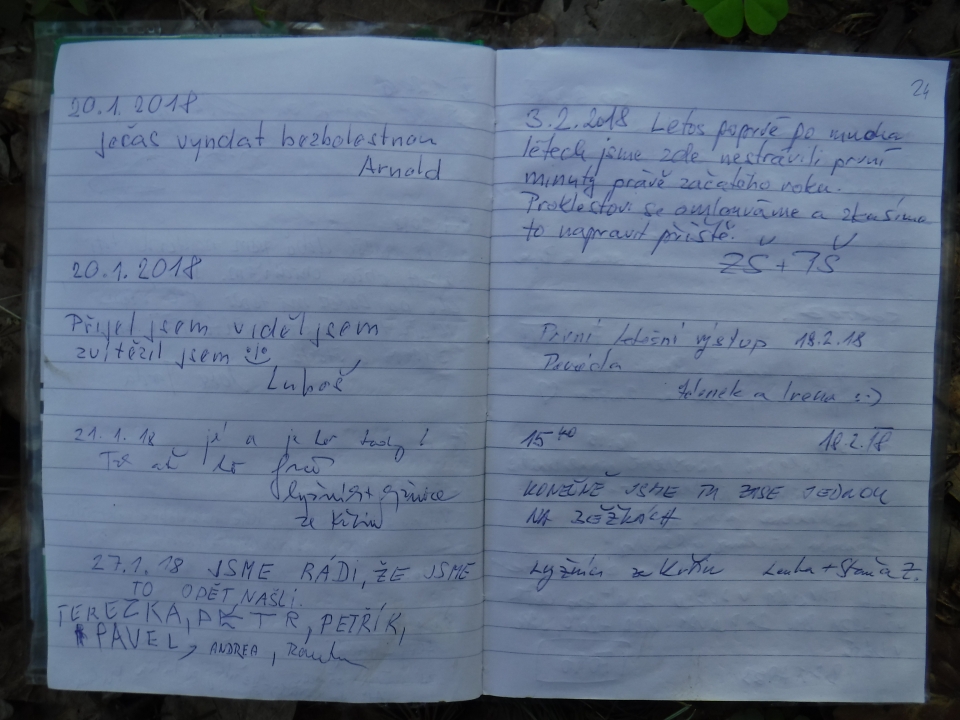 20.1.2018
ječas vyndat bezbolestnou
Arnold
20.1.2018
Přijel jsem viděl jsem
zvítězil jsem
Luboš
21.1.18 jé a je tady!
27.1.18 JSME RÁDI, ŽE JSME
TO OPĚT NAŠLI.
TEREZKA, PETR, PETŘÍK,
PAVEL, ANDREA,
24
3.2.2018 Letos poprvé po mnoha
létech jsme zde nestrávili první
minuty právě začatého roku.
se omlouváme a zkusíme
to napravit příště.
ZŠ + JŠ
První letošní výstup 18.2.18
Zdenek a Irena :-)
15⁴⁰ 18.2.18
KONEČNĚ JSME TU ZASE JEDNOU
NA BĚŽKÁCH
Lyžníci ze Křtin + Staňa Z.